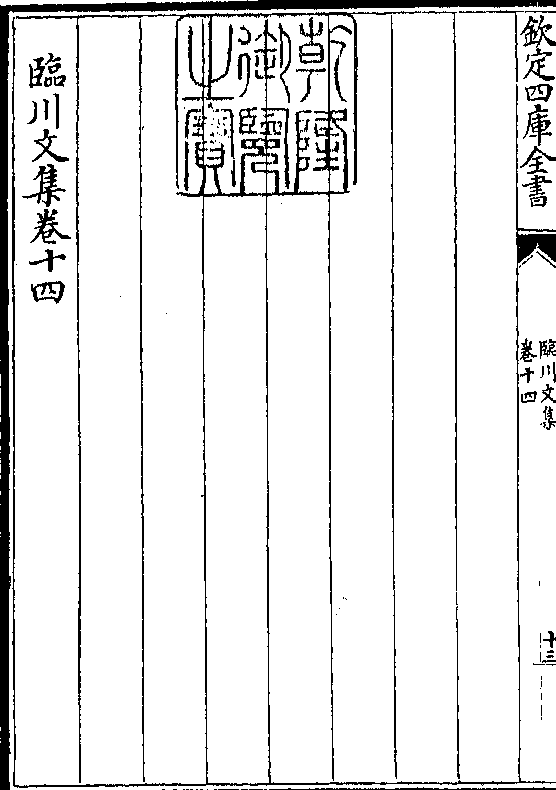 欽定四庫全書
臨川文集
卷十四
十三
乾隆
御覽
之寶
臨川文集卷十四